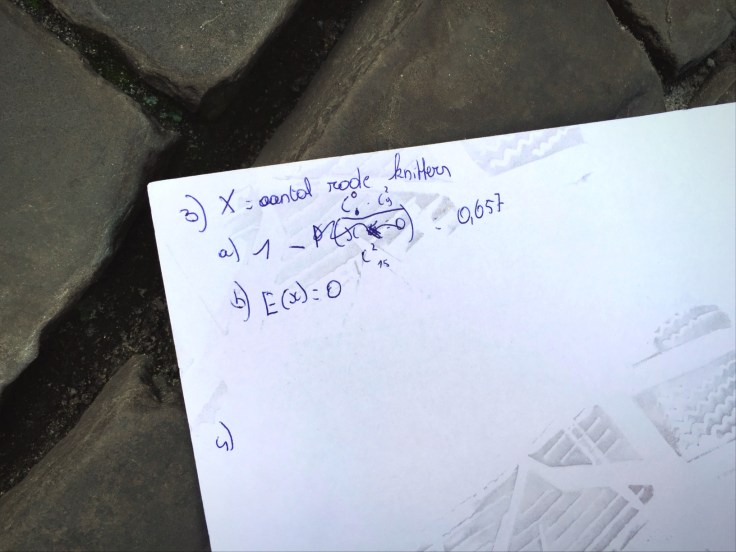 3) X = aantal rode knikkers
a) 1 - C⁰₆ · C²₉ / C²₁₅ = 0,657
b) E(x) = 0
4)